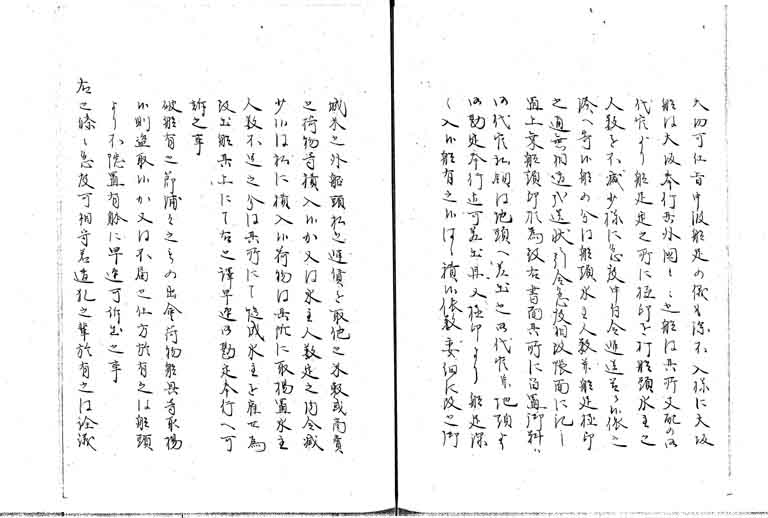 大切可仕旨中渡船足の儀も深不入様に大坂
船は大坂奉行at外国〻之船は其所支配の
代官より船足定之所に極印を打船頭水主之
人数を不減少様に急度申付今度送差
湊へ寄候船の分は船頭水主人数并船足極印
之通無相違
置上乗船頭印形為致右書面其所に留置御料は
御代官私領は地頭へ差出之御代官并地頭より
御勘定奉行迄可差出且又極印より船足深
く入候船有之候はゝ積候俵数委細に改之御
城米之外船頭私之運賃を取他之米穀或商賣
之荷物等積入候か又は水主人数定之内令減
少候はゝ私に積入候荷物は其所に取揚置水主
人数不足之分は其所にて慥成水主を雇せ為
致出船其上にて右之譯早速御勘定奉行へ可
訴之事
破船有之節浦々之もの出會荷物船具等取揚
候則盗取候か又は不届之仕方於有之は船頭
より不隠置有躰に早速可訴出之事
右之條〻急度可相守若違犯之輩於有之は詮議